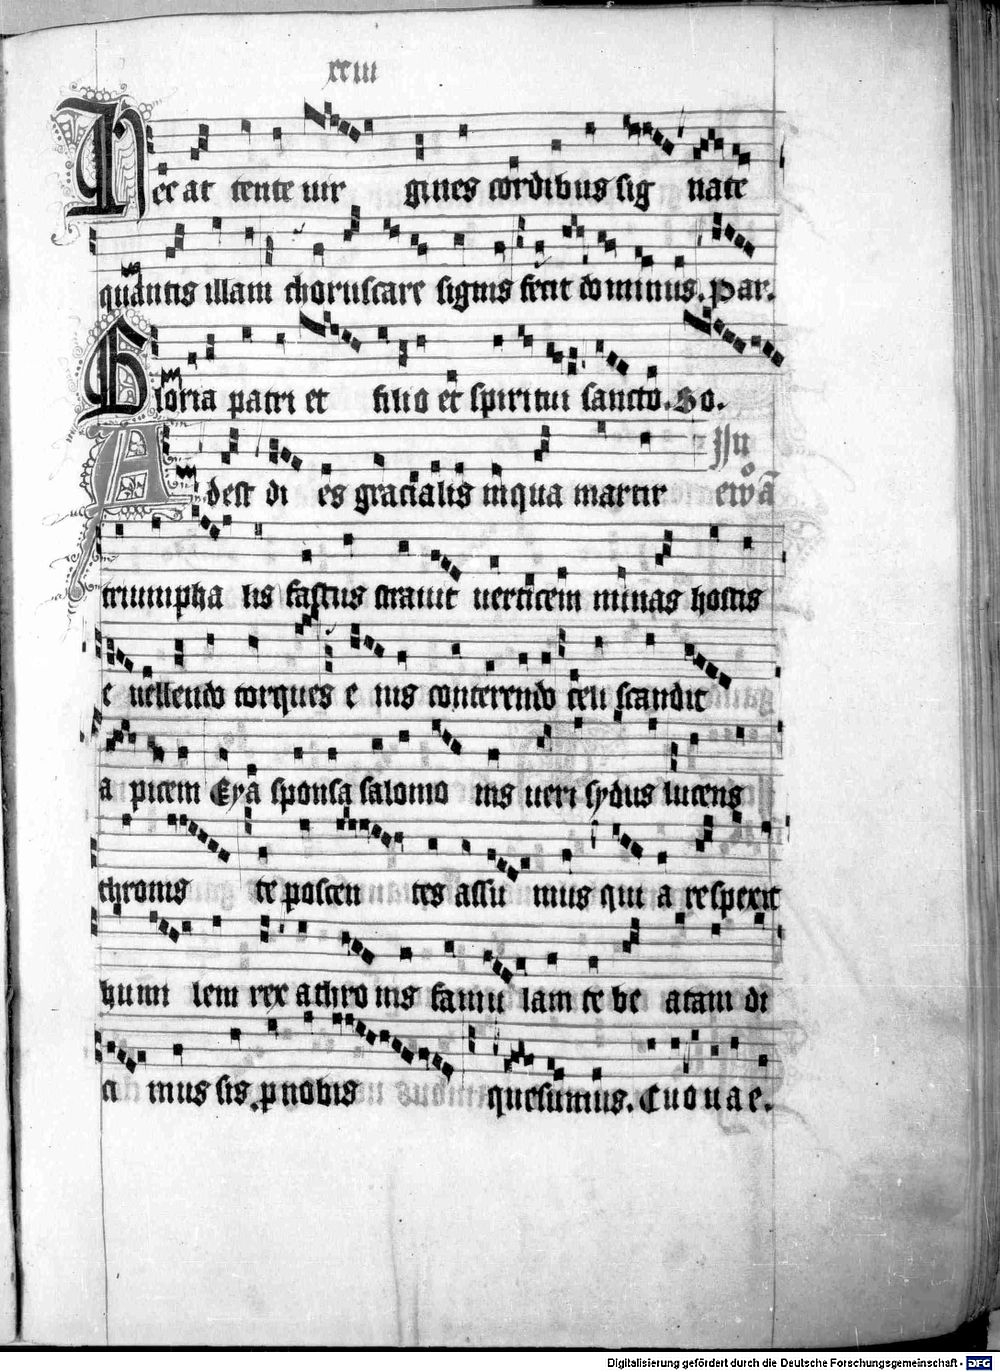 xxiii
Nec at tente uir gines cordibus sig nate
quantis illam choruscare signis fecit dominus. Par.
Gloria patri et filio et spiritui sancto. So.
In
Adest di es gracialis inqua martir ewã
triumpha lis fastus strauit uerticem minas hostis
e uellendo torques e ius conterendo ceu scandit
a picem Eya sponsa salomo nis ueri sydus lucens
thronis te poscen tes assu mus qui a respexit
humi lem rex athro nis famu lam te be atam di
ci mus sis pnobis quesumus. Euouae.
Digitalisierung gefördert durch die Deutsche Forschungsgemeinschaft - DFG